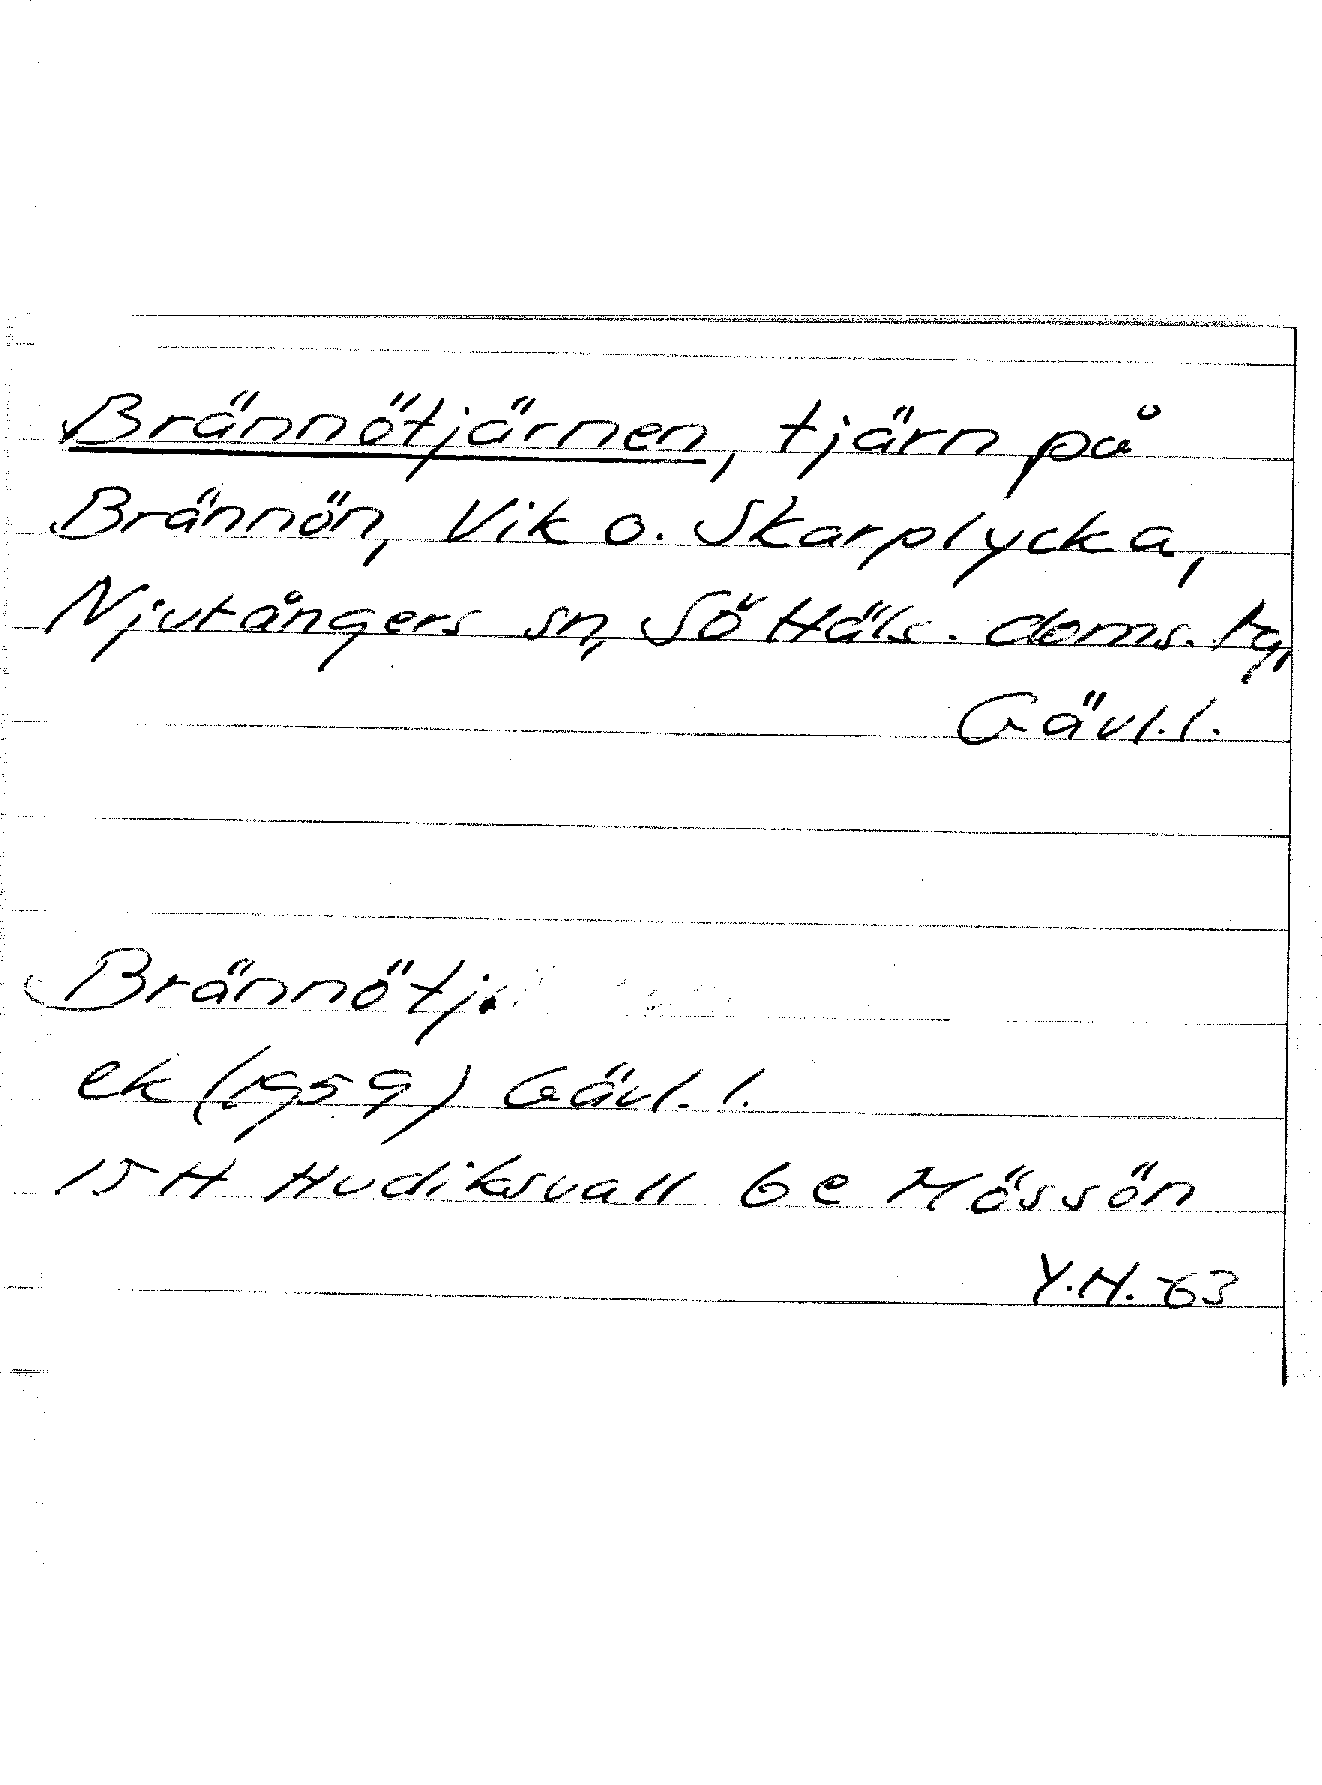 Brännötjärnen, tjärn på
Brännön, Vik o. Skarplycka,
Njutångers sn, Sö Häls. doms. tg,
Gävl. l.
Brännötj.
ek (1959) Gävl. l.
15H Hudiksvall 6e Mössön
Y.H. -63